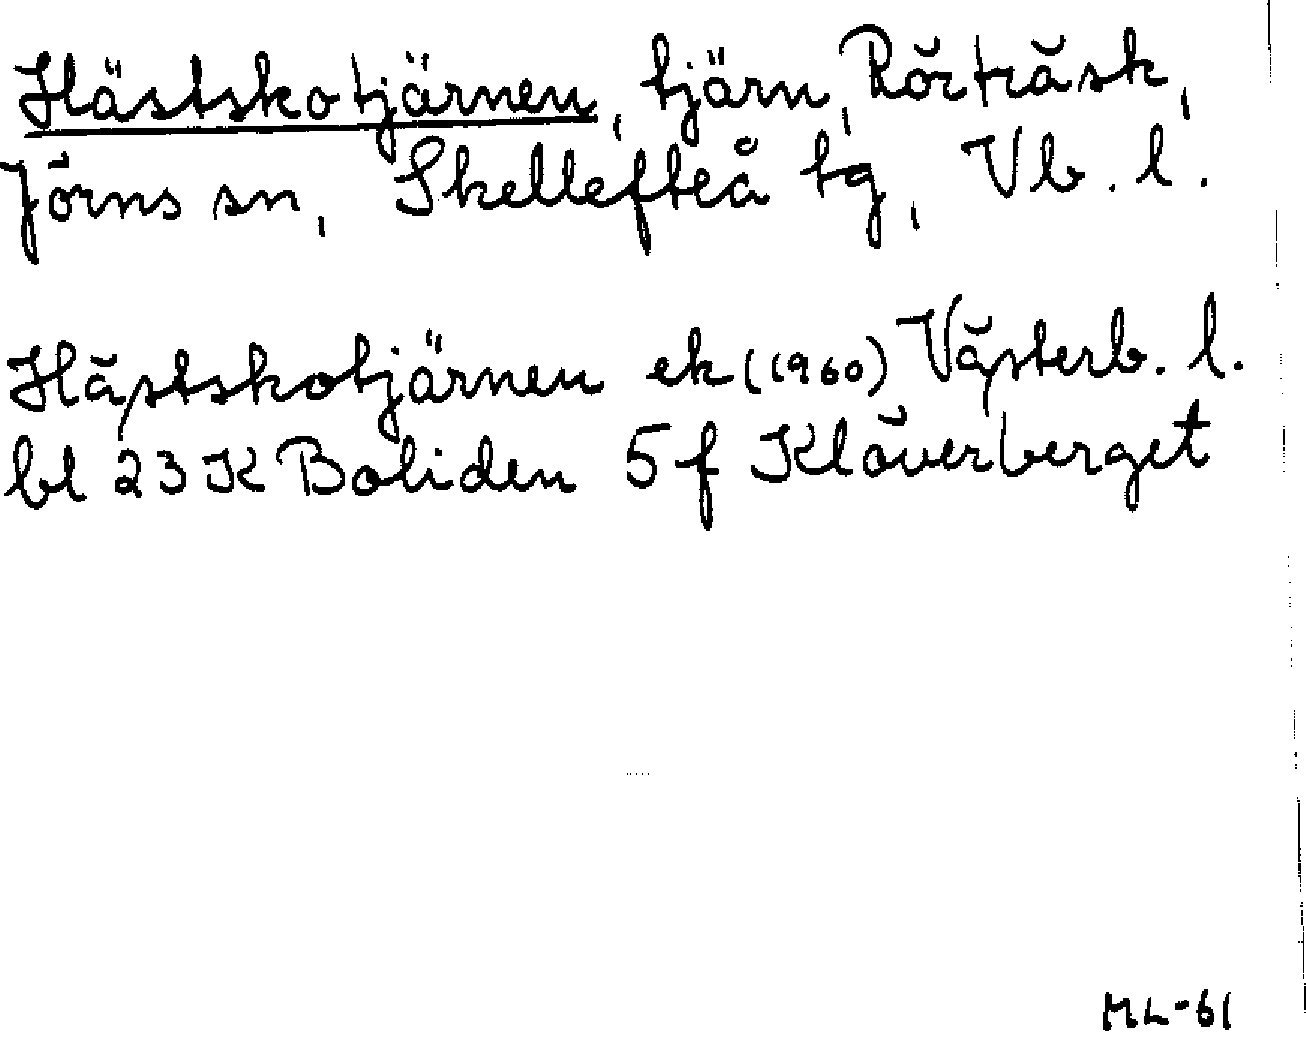 Hästskotjärnen, tjärn, Rörträsk,
Jörns sn, Skellefteå tg, Vb. l.
Hästskotjärnen ek (1960) Västerb. l.
bl 23 K Boliden 5 f Klöverberget
ML-61